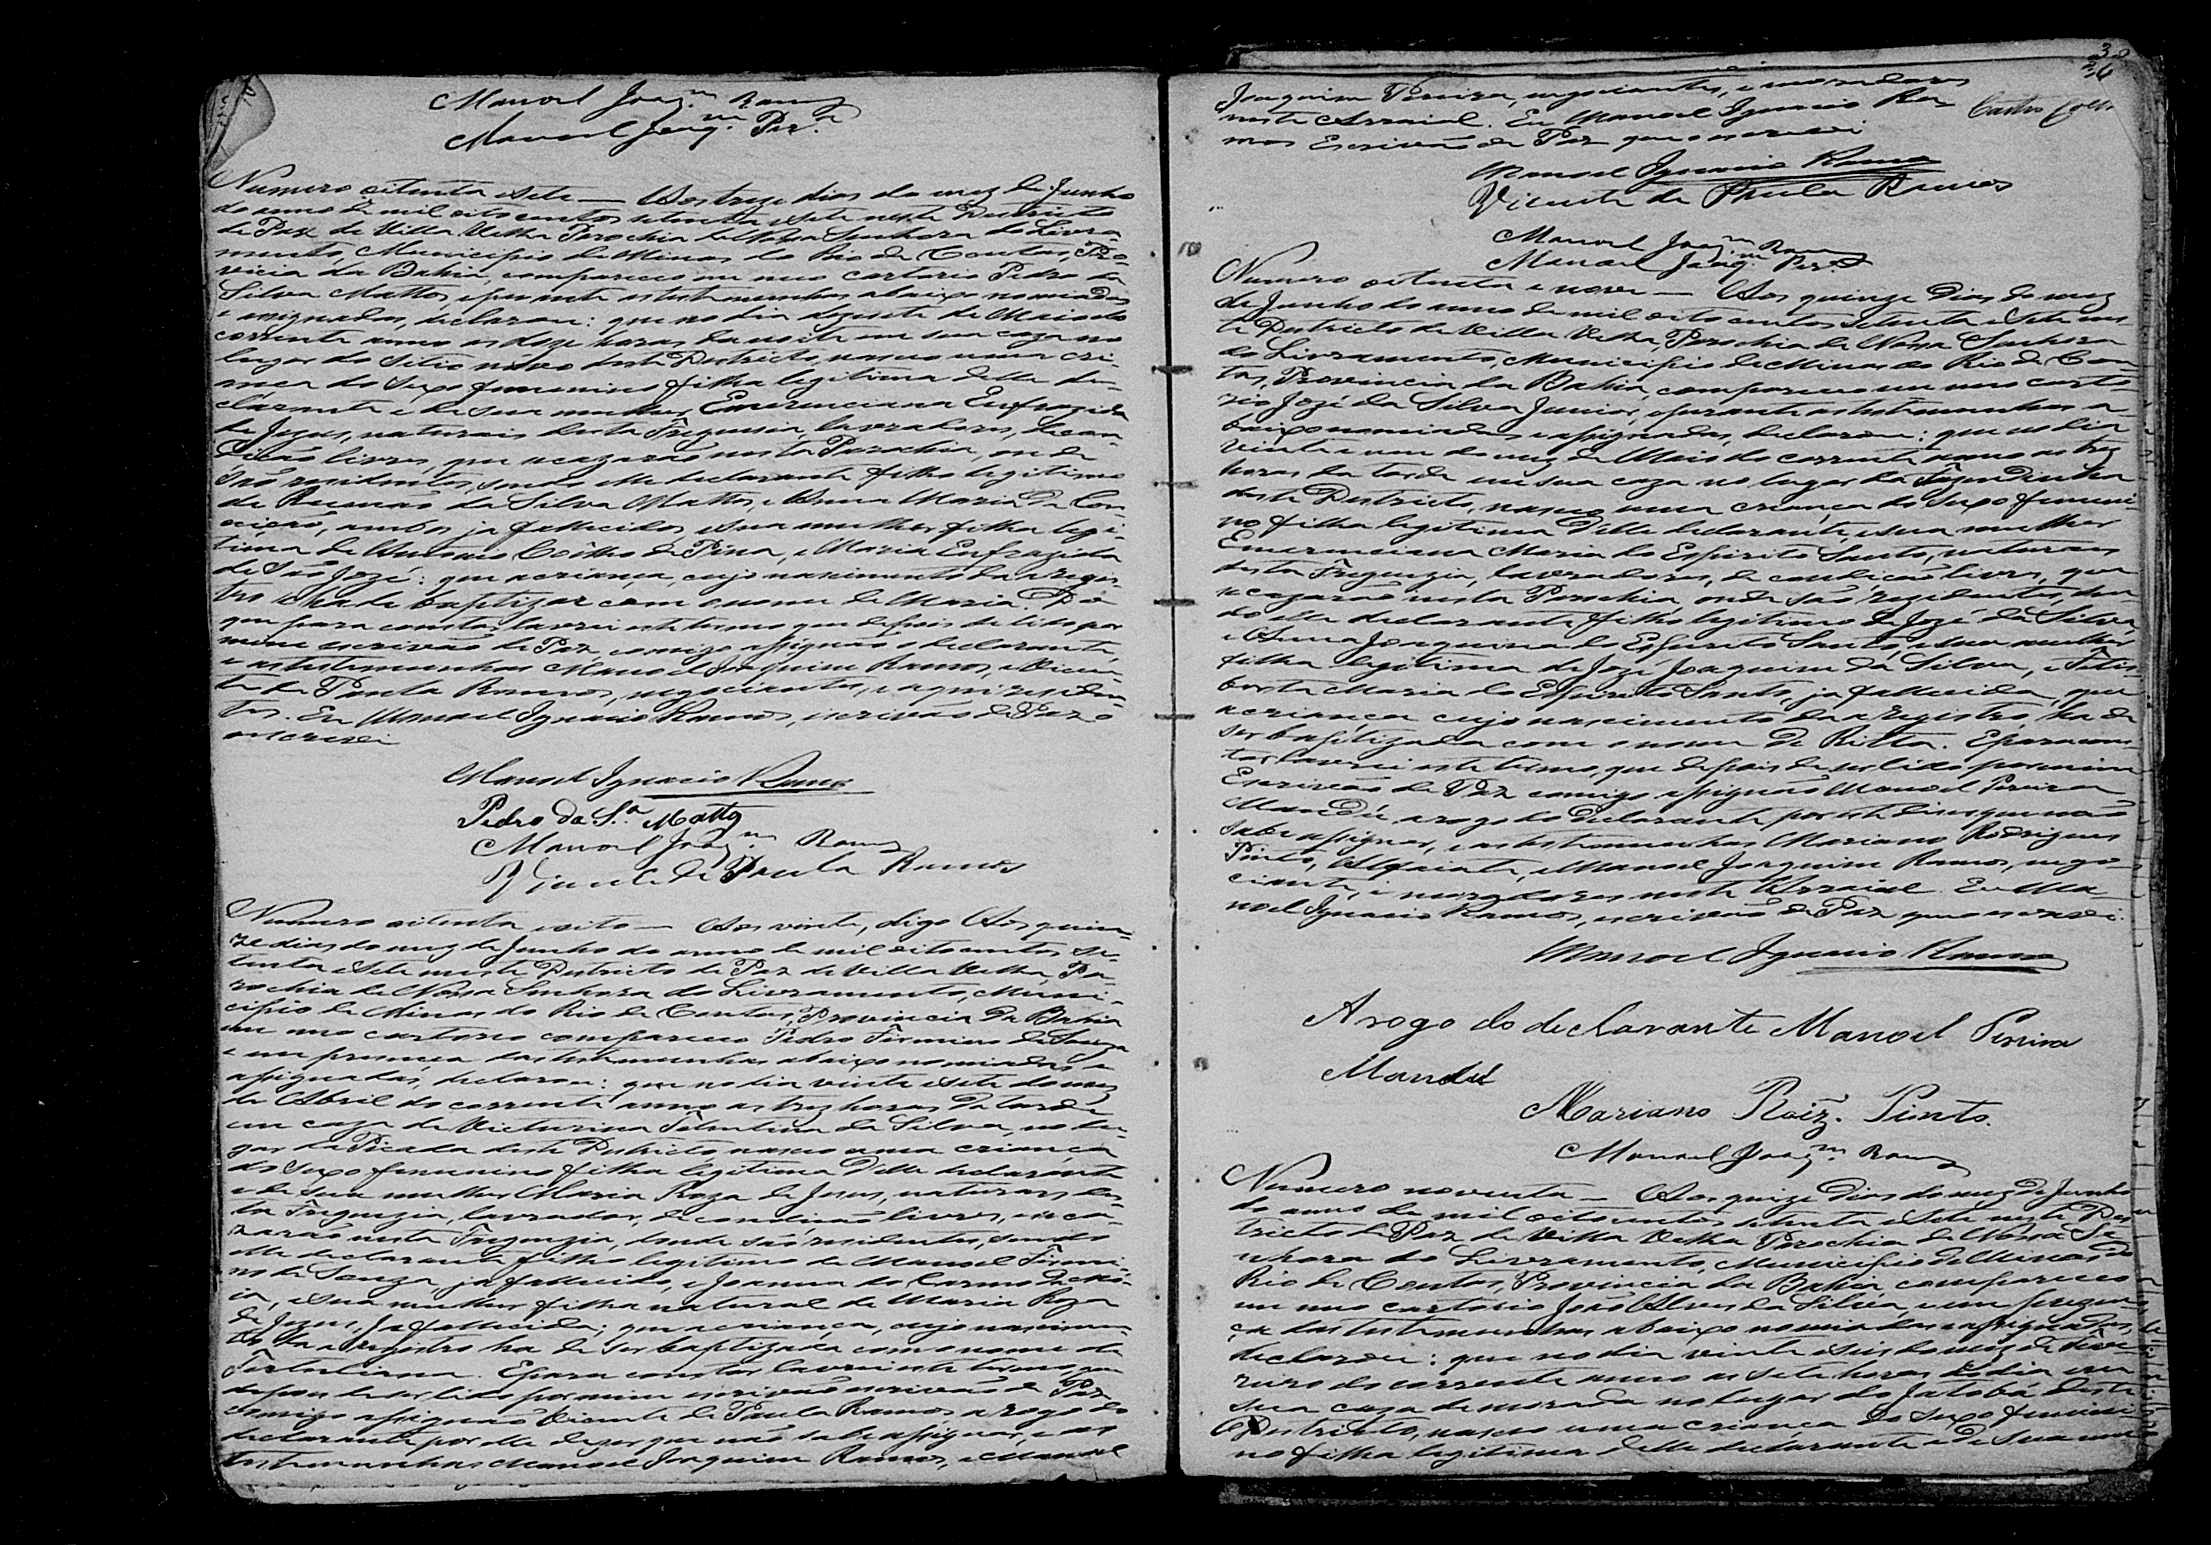 Manoel Joaq.m Ramos
Manoel Joaq.m Per.a
Numero oitenta e sete — Aos treze dias do mez de Junho
do anno de mil oito centos setenta e sete neste Districto
de Paz de Villa Velha Parochia de Nossa Senhora do Livra-
mento, Municipio de Minas do Rio de Contas, Pro-
vincia da Bahia, compareceo em meo cartorio Pedro da
Silva Mattos, e perante as testemunhas abaixo nomiadas
e assignadas, declarou: que no dia dezesete de Maio do
corrente anno as doze horas da noite em sua caza no
lugar do Sitio novo deste Districto, nasceo uma cri-
ança do sexo femenino filha legitima delle de-
clarante e de sua mulher Emerenciana Eufrazida
de Jesus, naturais desta Freguesia, lavradores, de con-
dicão livres, que se cazarão nesta Parochia, onde
são residentes, sendo elle declarante filho legitimo
de da Silva Mattos, e Anna Maria da Con
ceição, ambos ja fallecidos, e sua mulher filha legi-
tima de Antonio Coêlho de Pina, e Maria Eufrazida
de São Jozé: que a criança, cujo nascimento da a regis-
tro se ha de baptizar com o nome de Maria. Do
que para constar lavrei este termo que depois de lido por
mim escrivão de Paz, comigo assignão o declarante,
e as testemunhas Manoel Joaquim Ramos, e Vicen-
te de Paula Ramos, negociantes, e aqui residen-
tes. Eu Manoel Ignacio Ramos, escrivão de Paz o
escrevi
Manoel Ignacio Ramos
Pedro da S.a Mattos
Manoel Joaq.m Ramos
Vicente de Paula Ramos
Numero oitenta e oito — Aos vinte, digo Aos quin-
ze dias do mez de Junho do anno de mil oito centos se-
tenta e sete neste Districto de Paz de Villa Velha, Pa-
rochia de Nossa Senhora do Livramento, Muni-
cipio de Minas do Rio de Contas, Provincia da Bahia
em meo cartorio compareceo Pedro Firmino de Souza
e em prezença das testemunhas abaixo nomiadas e
assignadas, declarou: que no dia vinte e sete do mez
de Abril do corrente anno as trez horas da tarde
em caza de Victurina da Silva, no lu-
gar da Picada deste Districto, nasceo uma criança
do sexo femenino filha legitima delle declarante
e de sua mulher Maria Roza de Jesus, naturaes des-
ta Freguezia, lavrador, de condicão livres, e se ca-
zarão nesta Freguezia, donde são residentes, sendo
elle declarante filho legitimo de Manoel Firmi-
no de Souza, ja fallecido, e Joanna do Carmo
e sua mulher filha natural de Maria Roza
de Jezus, ja fallecida; que a criança, cujo nascimen-
to da a registro ha de ser baptizada com o nome de
Fertuliana. E para constar lavrei este termo, que
depois de ser lido por mim escrivão escrivão de Paz
comigo assignão Vicente de Paula Ramos a rogo do
declarante por elle dizer que não sabe assignar, e as
testemunhas Manoel Joaquim Ramos, e Manoel
Castro
Joaquim Pereira, negociantes, e moradores
neste Arraial. Eu Manoel Ignacio Ra-
mos Escrivão de Paz que o escrevi
Manoel Ignacio Ramos
Vicente de Paula Ramos
Manoel Joaq.m Ramos
Manoel Joaq.m Per.a
Numero oitenta e nove — Aos quinze dias do mez
de Junho do anno de mil oito centos setenta e sete nes-
te Districto de Villa Velha, Parochia de Nossa Senhora
do Livramento, Municipio de Minas do Rio de Con-
tas, Provincia da Bahia, compareceo em meo carto
rio Jozé da Silva Junior, e perante as testemunhas a-
baixo nomiadas e assignadas, declarou: que no dia
vinte e um do mez de Maio do corrente anno as trez
horas da tarde em sua caza no lugar da Fazendinha
deste Districto, nasceo uma criança do sexo femeni-
no filha legitima delle declarante e sua mulher
Emerenciana Maria do Espirito Santo, naturaes
desta Freguezia, lavradores, de condicão livres, que
se cazarão nesta Parochia, onde são rezidentes, sen-
do elle declarante filho legitimo de Jozé da Silva,
e Anna Joaquina do Espirito Santo, e sua mulher
filha legitima de Joze Joaquim da Silva, e Felis-
berta Maria do Espirito Santo, ja fallecida, que
a criança cujo nascimento da a registro, ha de
ser baptizada com o nome de Ritta. E para cons-
tar lavrei este termo, que depois de ser lido por mim
Escrivão de Paz comigo assignão Manoel Pereira
Mandú, a rogo do declarante, por este dizer que não
sabe assignar, e as testemunhas Mariano Rodrigues
Pinto, Alfaiate, e Manoel Joaquim Ramos, nego-
ciante, e moradores neste Arraial. Eu Ma-
noel Ignacio Ramos, escrivão de Paz que o escrevi.
Manoel Ignacio Ramos
Arogo do declarante Manoel Pereira
Mandú
Mariano Roiz. Pinto.
Manoel Joaq.m Ramos
Numero noventa — Aos quize dias do mez de Junho
do anno de mil oito centos setenta e sete neste Des-
tricto de Paz de Villa Velha Parochia de Nossa Se
nhora do Livramento, Municipio de Minas do
Rio de Contas, Provincia da Bahia, compareceo
em meo cartorio João Alves da Silva, e em prezen-
ça das testemunhas abaixo nomiadas e assignadas,
declarou: que no dia vinte e seis do mez de Feve
reiro do corrente anno as sete horas do dia em
sua caza de morada no lugar do Jatobá deste
Districto, nasceo uma criança do sexo femeni-
no filha legitima delle declarante e de sua mu